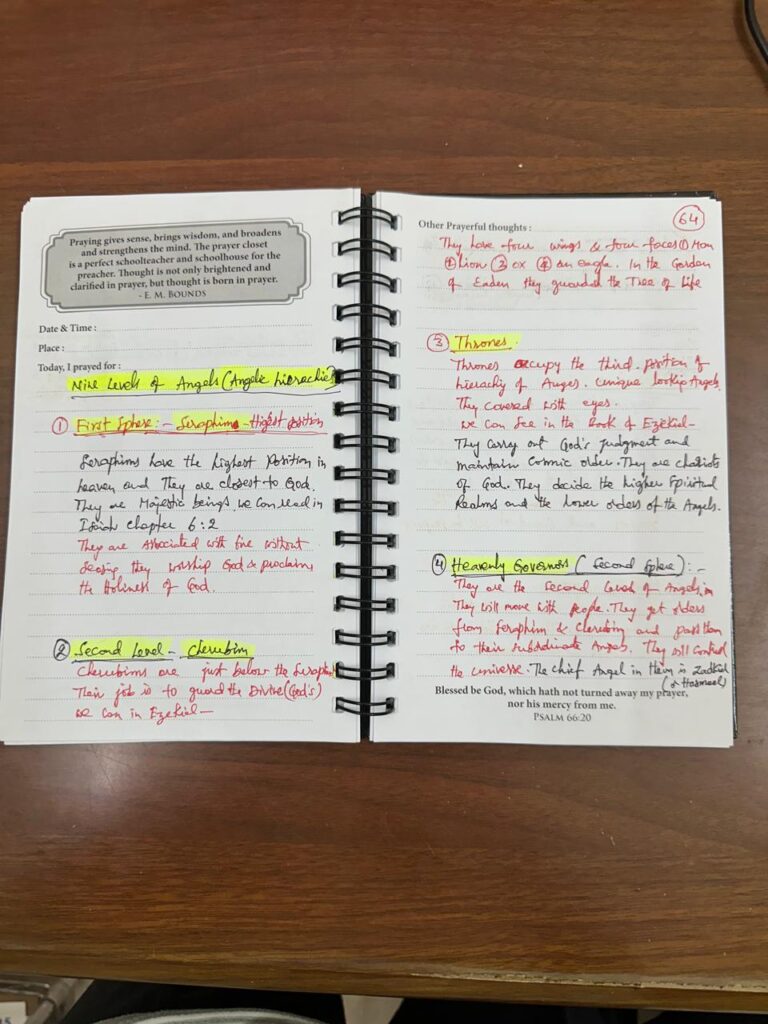 Praying gives sense, brings wisdom, and broadens
and strengthens the mind. The prayer closet
is a perfect schoolteacher and schoolhouse for the
preacher. Thought is not only brightened and
clarified in prayer, but thought is born in prayer.
- E. M. BOUNDS
Date & Time :
Place :
Today, I prayed for :
Nine Levels of Angels (Angelic hierachies)
① First Sphere:- Seraphims - Highest position
Seraphims have the highest position in
heaven and They are closest to God.
They are Majestic beings. we can read in
Isaiah chapter 6:2
They are associated with fire without
they worship God & proclaim
the Holiness of God.
② Second Level - Cherubim
Cherubims are just below the Seraphs
Their job is to guard the Divine (God's)
we can in Ezekiel -
64
Other Prayerful thoughts :
They have four wings & four faces ① Man
② Lion ③ ox ④ an eagle. In the Garden
of Eaden they guarded the Tree of Life
③ Thrones.
Thrones occupy the third position of
hierachy of Anges. Unique lookip Angels.
They covered with eyes.
we can See in the book of Ezekiel-
They carry out God's judgment and
maintain Cosmic order. They are chariots
of God. They decide the higher Spiritual
Realms and the lower orders of the Angels.
④ Heavenly Governors (Second Sphere) :-
They are the Second level of Angels in
They will move with people. They get orders
from Seraphim & Cherubim and pass them
to their Subordinate Anges. They will Control
the universe. The Chief Angel in them is Zadkiel
(or Hasmeel)
Blessed be God, which hath not turned away my prayer,
nor his mercy from me.
PSALM 66:20